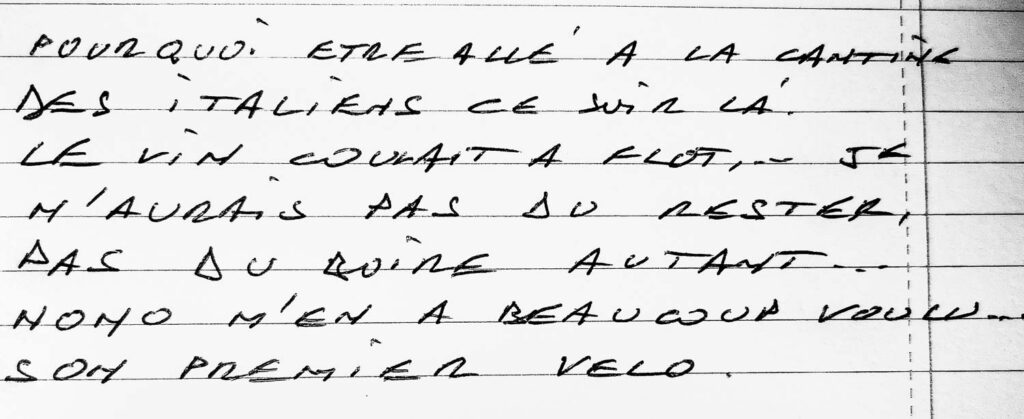 POURQUOI ETRE ALLÉ A LA CANTINE
DES ITALIENS CE SOIR LÁ.
LE VIN COULAIT A FLOT,... JE
N'AURAIS PAS DU RESTER,
PAS DU BOIRE AUTANT...
NONO M'EN A BEAUCOUP VOULU...
SON PREMIER VELO.